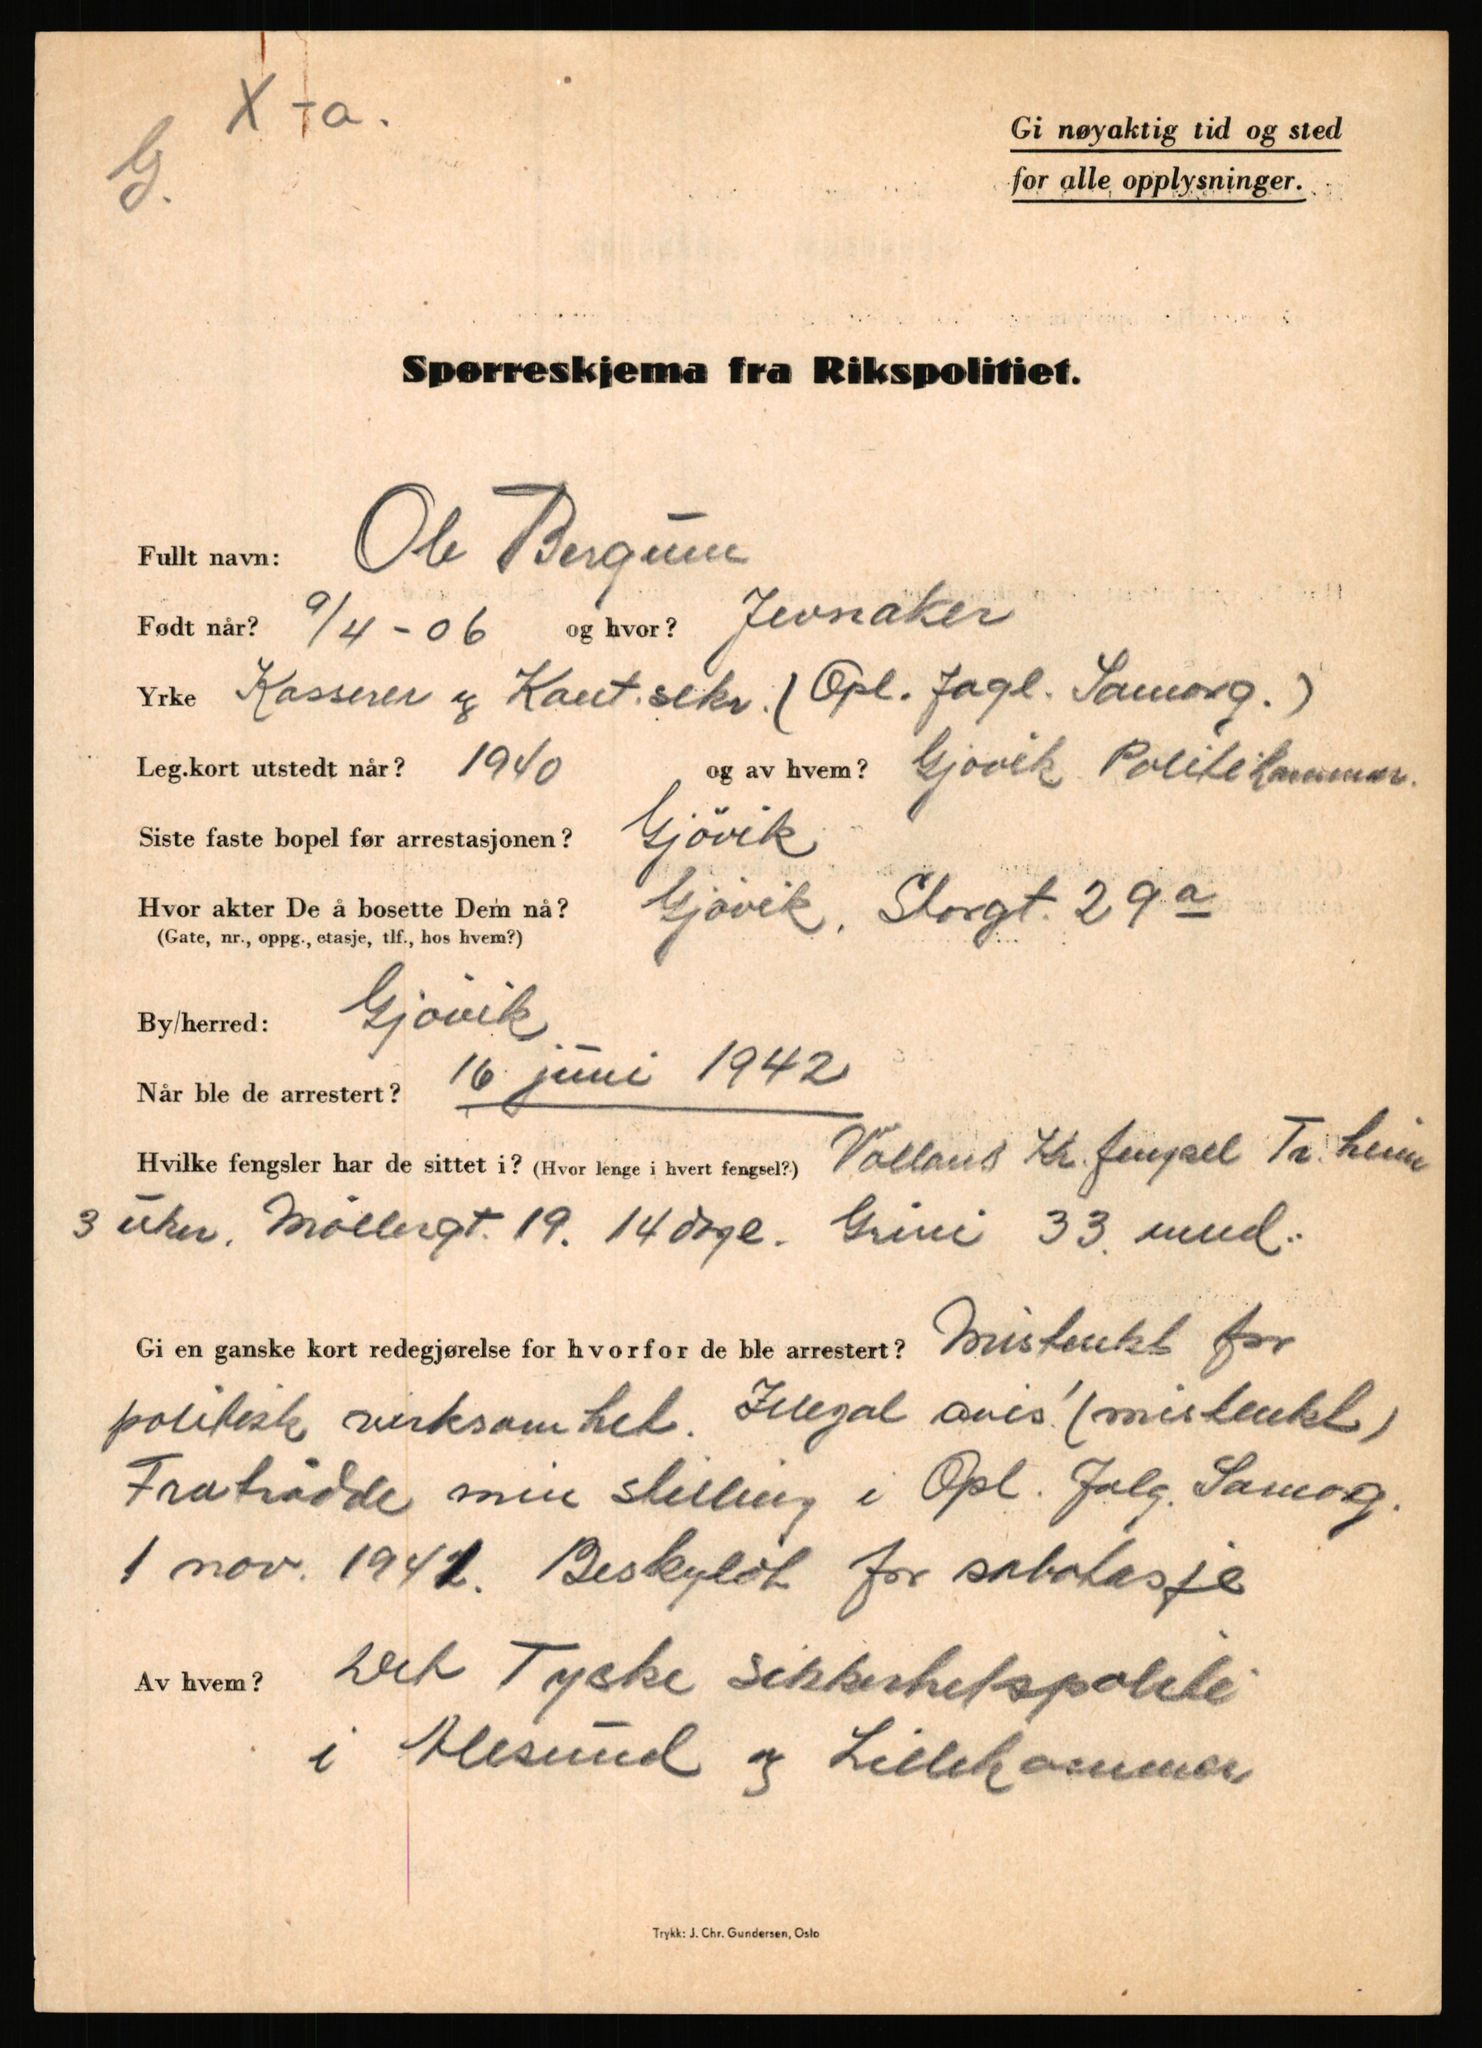 X - a.
G.
Gi nøyaktig tid og sted
for alle opplysninger.
Spørreskjema fra Rikspolitiet.
Fullt navn: Ole Bergum
Født når? 9/4 - 06 og hvor? Jevnaker
Yrke Kasserer og Kont.sekr. (Opl. fagl. Samorg.)
Leg.kort utstedt når? 1940 og av hvem? Gjøvik Politikammer.
Siste faste bopel før arrestasjonen? Gjövik
Hvor akter De å bosette Dem nå? Gjövik, Storgt. 29 a
(Gate, nr., oppg., etasje, tlf., hos hvem?)
By/herred: Gjövik
Når ble de arrestert? 16 juni 1942
Hvilke fengsler har de sittet i? (Hvor lenge i hvert fengsel?) Vollans Kr. fengsel Tr.heim
3 uker. Möllergt. 19. 14 dage. Grini 33. mnd.
Gi en ganske kort redegjørelse for hvorfor de ble arrestert? Mistenkt for
politisk virksomhet. Illegal avis! (mistenkt)
Fratrådde min stilling i Opl. Falg. Samorg.
1 nov. 1941. Beskyldt for sabotasje
Av hvem? Det Tyske sikkerhetspoliti
i Ålesund og Lillehammer
Trykk: J. Chr. Gundersen, Oslo